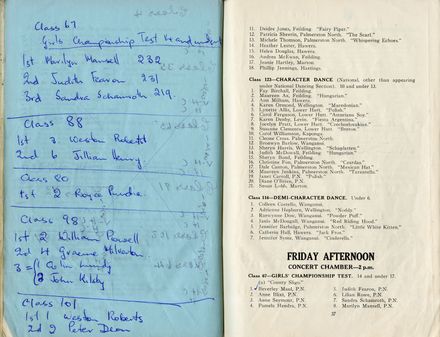 Class 67
Girls Championship Test
1st Marilyn Mansell 232
2nd Judith Fearon 231
3rd Sandra Schamroth 219
Class 88
1st 3 Weston Roberts
2nd 6 Jillian Henry
Class 80
1st 2 Royce Purdie
Class 98
1st 2 William Powell
2nd 4 Graeme
3= Colin Lundy
John Kilsby
Class 101
1st 1 Weston Roberts
2nd 2 Peter Dean
11. Deidre Jones, Feilding. "Fairy Piper."
12. Patricia Shewrin, Palmerston North. "The Scarf."
13. Michele Thomson, Palmerston North. "Whispering Echoes."
14. Heather Lester, Hawera.
15. Helen Douglas, Hawera.
16. Andrea McEwan, Feilding.
17. Jeanie Hartley, Marton.
18. Phillip Jennings, Hastings.
CHARACTER DANCE (National, other than appearing
under National Dancing Section). 10 and under 13.
1. Fay Birchall, Feilding.
2. Maureen Au, Feilding. "Hungarian."
3. Ann Milham, Hawera.
4. Karen Ormond, Wellington. "Macedonian."
5. Lynette Allis, Hawera. "Polish."
6. Carol Ferguson, Lower Hutt.
7. Karen Donby, Levin. "Fiesta Argentina."
8. Jocelyn Pratt, Lower Hutt. "Czechoslovakian."
9. Susanne Clements, Lower Hutt.
10. Carol Williamson, Kaponga.
11. Cleone Cross, Palmerston North.
12. Bronwyn Barlow, Wanganui.
13. Sheryn Harris, Wellington.
14. Judith McDowall, Feilding. "Hungarian."
15. Sheryn Bond, Feilding.
16. Christine Fon, Palmerston North. "Czardas."
17. Dale Gaston, Palmerston North. "Mexican Hat."
18. Maureen Jenkins, Palmerston North. "Tarantella."
19. Janet Carroll, P.N. "Polish."
20. Diane O'Brien, P.N.
21. Susan Lodd, Marton.
Class 116—DEMI-CHARACTER DANCE. Under 6.
1. Colleen Costello, Wanganui.
2. Adrienne Hepburn, Wellington. "Noddy."
3. Raewynne Dow, Wanganui. "Powder Puff."
4. Janis McDougall, Wanganui. "Red Riding Hood."
5. Jennifer Burbidge, Palmerston North. "Little White Kitten."
6. Catherin Hall, Hawera. "Jack Frost."
7. Jennifer Syme, Wanganui. "Cinderella."
FRIDAY AFTERNOON
CONCERT CHAMBER—2 p.m.
Class 67—GIRLS' CHAMPIONSHIP TEST. 14 and under 17.
(a) "County Sligo."
1. Beverley Maul, P.N.
2. Anne Blixt, P.N.
3. Anne Seymour, P.N.
4. Pamela Hendra, P.N.
5. Judith Fearon, P.N.
6. Lilian Rowe, P.N.
7. Sandra Schamroth, P.N.
8. Marilyn Mansell, P.N.
37